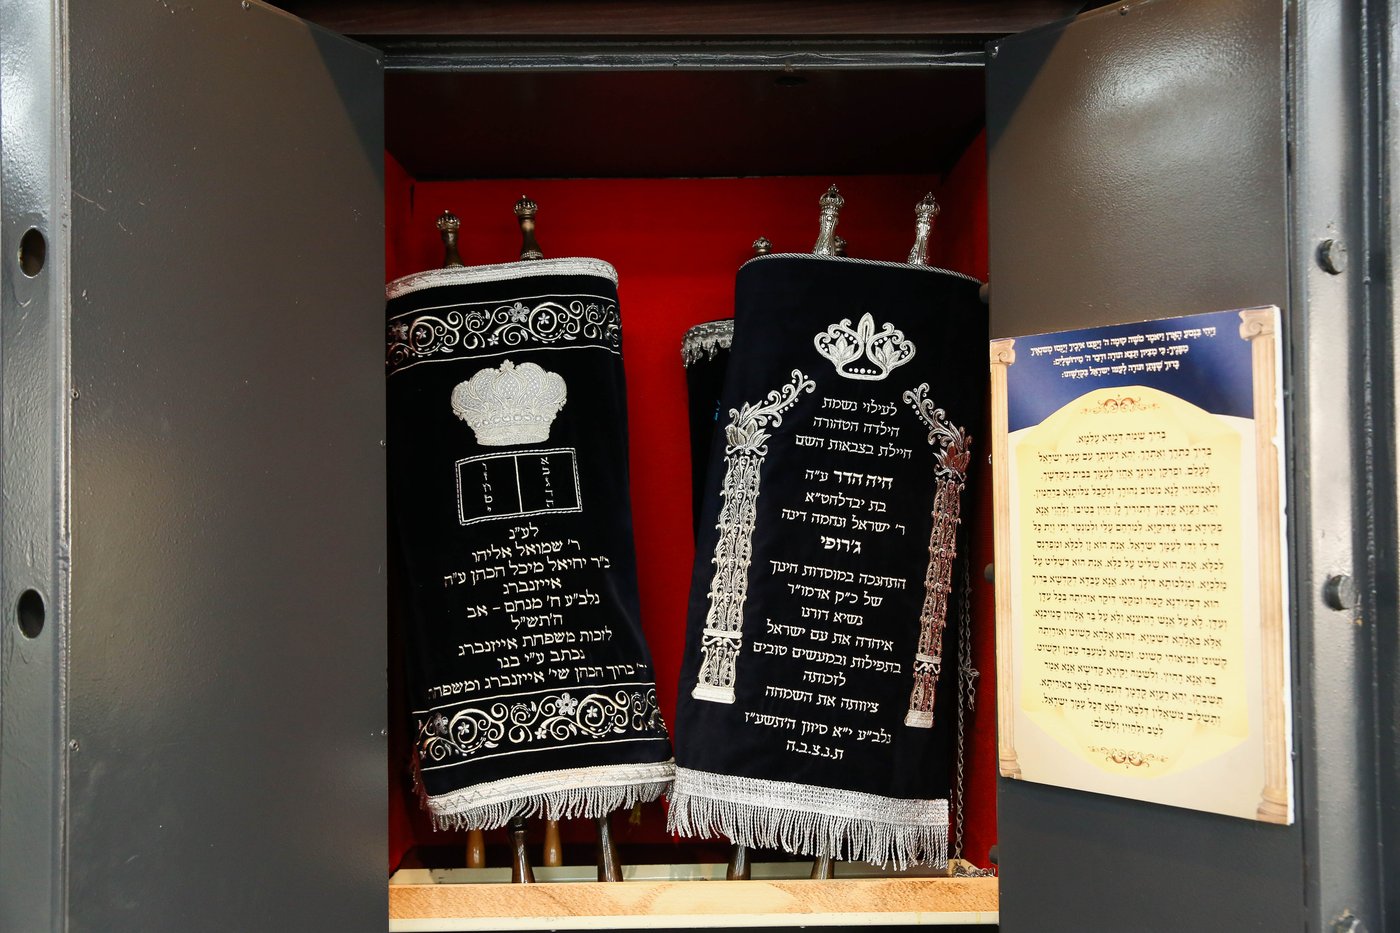 לע״נ
ר׳ שמואל אליהו
ב״ר יחיאל מיכל הכהן ע״ה
אייזנברג
נלב״ע ה׳ מנחם - אב
ה׳תש״ל
לזכות משפחת אייזנברג
נכתב ע״י בנו
ר׳ ברוך הכהן שי׳ אייזנברג ומשפחתו
לעילוי נשמת
הילדה הטהורה
חיילת בצבאות השם
חיה הדר ע״ה
בת יבדלחט״א
ר׳ ישראל ונחמה דינה
ג׳רופי
התחנכה במוסדות חינוך
של כ״ק אדמו״ר
נשיא דורנו
איחדה את עם ישראל
בתפילות ובמעשים טובים
לזכותה
ציוותה את השמחה
נלב״ע י״א סיוון ה׳תשע״ז
ת.נ.צ.ב.ה
ויהי בנסע הארן ויאמר משה קומה ה׳ ויפצו איביך וינסו משנאיך
מפניך: כי מציון תצא תורה ודבר ה׳ מירושלים:
ברוך שנתן תורה לעמו ישראל בקדשתו:
בריך שמה דמרא עלמא,
בריך כתרך ואתרך. יהא רעותך עם עמך ישראל
לעלם, ופרקן ימינך אחזי לעמך בבית מקדשך,
ולאמטויי לנא מטוב נהורך ולקבל צלותנא ברחמין.
יהא רעוא קדמך דתוריך לן חיין בטיבו. ולהוי אנא
פקידא בגו צדיקיא, למרחם עלי ולמנטר יתי וית כל
די לי ודי לעמך ישראל. אנת הוא זן לכלא ומפרנס
לכלא. אנת הוא שליט על כלא. אנת הוא דשליט על
מלכיא, ומלכותא דילך היא. אנא עבדא דקדשא בריך
הוא דסגידנא קמה ומקמי דיקר אוריתה בכל עדן
ועדן. לא על אנש רחיצנא ולא על בר אלהין סמיכנא,
אלא באלהא דשמיא, דהוא אלהא קשוט ואוריתה
קשוט ונביאוהי קשוט, ומסגא למעבד טבון וקשוט.
בה אנא רחיץ, ולשמה יקירא קדישא אנא אמר
תשבחן. יהא רעוא קדמך דתפתח לבאי באוריתא,
ותשלים משאלין דלבאי ולבא דכל עמך ישראל,
לטב ולחיין ולשלם.